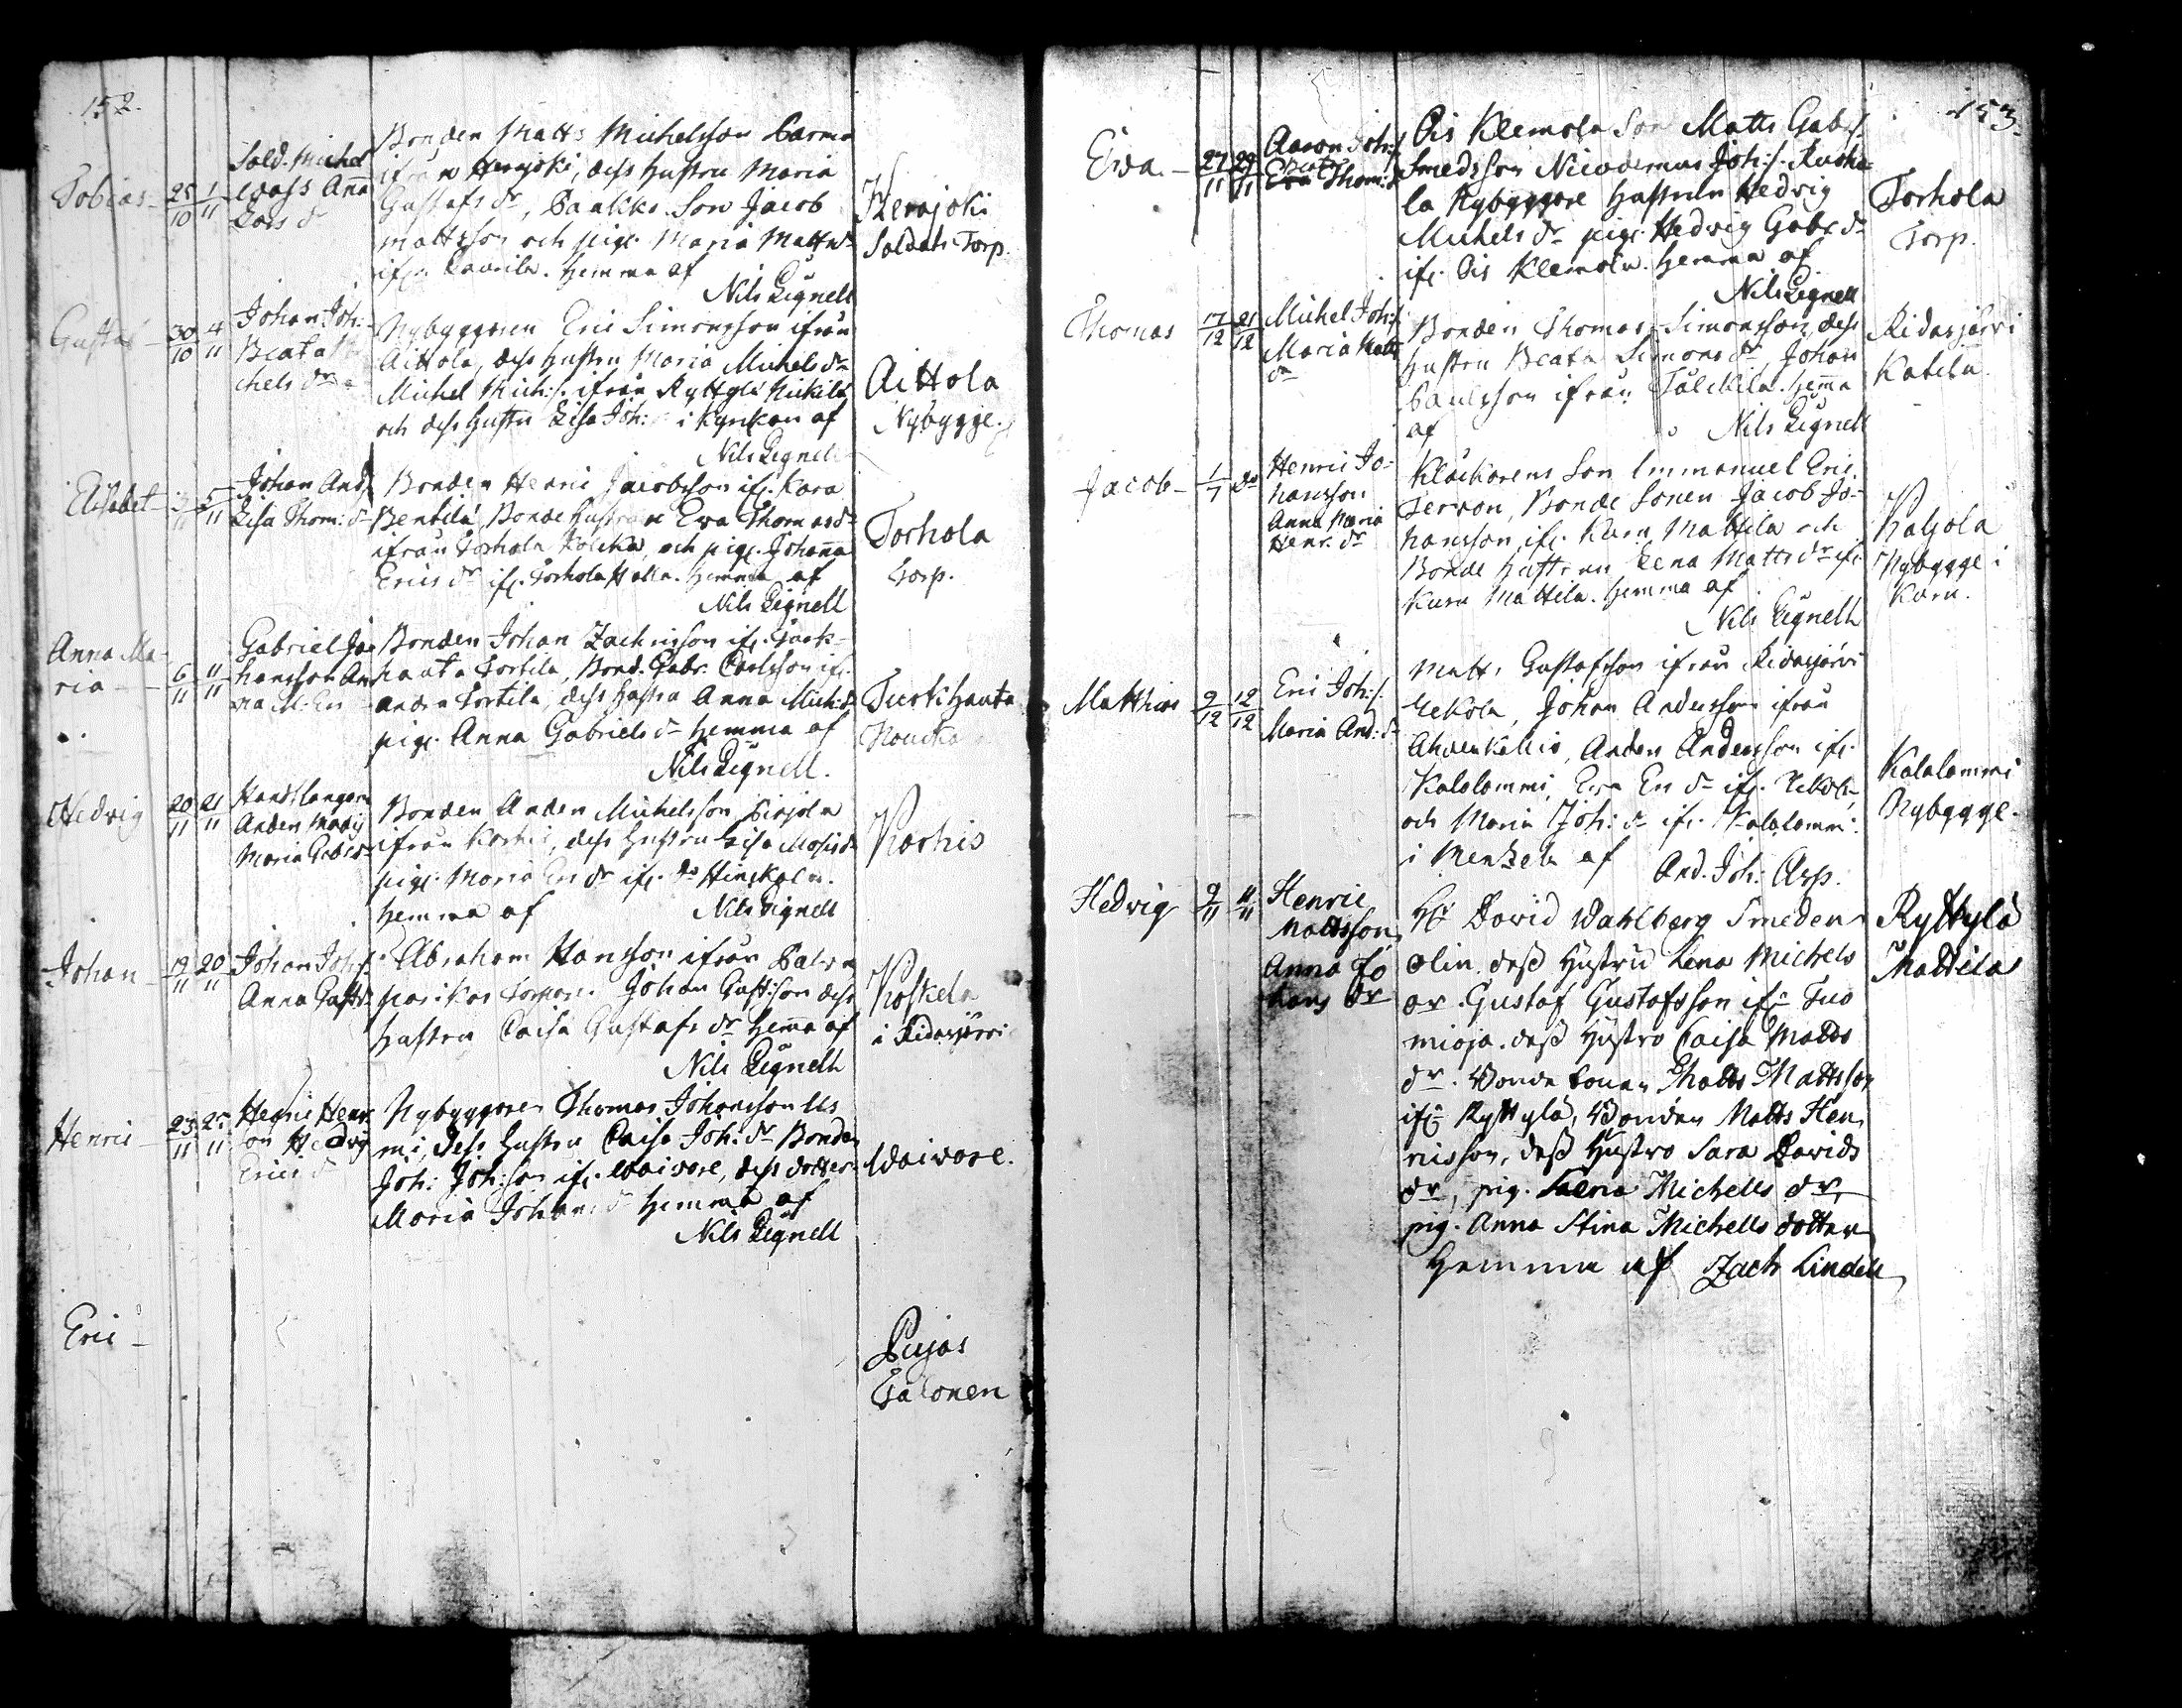 152.
Tobias - 25/10 1/11
Sold. Michel
Wass Anna
Lars dr
Bonden Matts Michelsson
ifrån Herajoki, dess hustru Maria
Gustafs dr, Paakko Son Jacob
Mattsson och pig. Maria Matts dr
if. hemma af
Nils Lignell
Herajoki
Soldats Torp.
Gustaf - 30/10 4/11
Johan Joh:
Beata Mi-
chels dr
Nybyggaren Eric Simonsson ifrån
Aittola, dess hustru Maria Michels dr
Michel Mich:s. ifrån Ryttylä Nickilä
och dess hustru Lisa Joh: i Kyrkan af
Nils Lignell
Aittola
Nybygge.
Elisabet - 5/11
Johan And:s.
Lisa Thom: dr
Bonden Henric Jacobsson if. Kara
Benttilä, Bonde hustrun Eva Thomas dr
ifrån Torhola, och pig. Johanna
Erics dr if. Torhola Halla. hemma af
Nils Lignell
Torhola
Torp.
Anna Ma-
ria - 6/11 11/11
Gabriel Jo-
hansson An-
na M.
Bonden Johan Zachrisson if. Turk-
hauta Torttila, Bond. Gabr. Carlsson if.
andra Torttila, dess hustru Anna Mich: dr
pig. Anna Gabriels dr hemma af
Nils Lignell.
Turkhauta
Hedvig 20/11 21/11
Handtlangare
Anders
Maria Gabr: dr
Bonden Anders Michelsson
ifrån Karhis, dess hustru Lisa
pig. Maria Eri dr if. do
hemma af Nils Lignell
Karhis
Johan - 19/11 20/11
Johan Joh:s.
Anna Gust: dr
Abraham Hansson ifrån
Johan Gust:son dess
hustru Caisa Gustafs dr hema af
Nils Lignell
Koskela
i Ridasjärvi
Henric - 23/11 25/11
Henric Henr.
son Hedvig
Erics dr
Nybyggaren Thomas Johansson
dess hustru Caisa Joh: dr Bonden
Joh: Joh:son if. Waivare, dess dotter
Maria Johans dr hemma af
Nils Lignell
Waivare.
Eric -
153.
Eva. - 27/11 29/11
Aaron Joh:s.
Thom: dr
Ois Klemola Son Matts Gabr:s.
Smedsson Nicodemus Joh:s. Ruoho-
la Nybyggare hustrun Hedvig
Michels dr pig: Hedvig Gabr. dr
if. Ois Klemola. hemma af
Nils Lignell
Torhola
Torp.
Thomas 17/12 21/12
Michel Joh:s.
Maria Matts
dr
Bonden Thomas Simonsson, dess
hustru Beata Simons dr, Johan
Paulsson ifrån hemma
af Nils Lignell
Ridasjärvi
Katila.
Jacob - 1/7 do
Henric Jo-
hansson
Anna Maria
Henr. dr
Klockarens Son Immanuel Eric
Bonde Sonen Jacob Jo-
hansson, if. Kara Mattila och
Bonde hustrun Lena Matts dr if.
Kara Mattila. hemma af
Nils Lignell
Nybygge i
Kara.
Matthias 9/12 12/12
Eric Joh:s.
Maria And: dr
Matts Gustafsson ifrån Ridasjärvi
Uckola, Johan Andersson ifrån
Ahvenkallio, Anders Andersson if.
Kalalammi, Eva Eri dr if. Uckola,
och Maria Joh: dr if. Kalalammi
i Mentzele af And. Joh: Asp.
Kalalammi
Nybygge.
Hedvig 9/11 11/11
Henric
Mattsson
Anna Jo
hans dr
Hr David Wahlberg Smeden
Olin. dess Hustru Lena Michels
dr. Gustaf Gustafsson ifn Tuo
mioja. dess Hustro Caisa Matts
dr. Bonde Sonen Matts Mattsson
ifn Ryttylä, Bonden Matts Hen
risson, dess Hustro Sara Davids
dr, pig. Lena Michells dr,
pig. Anna Stina Michells dotter
Hemma af Zach Lindell
Ryttylä
Mattila